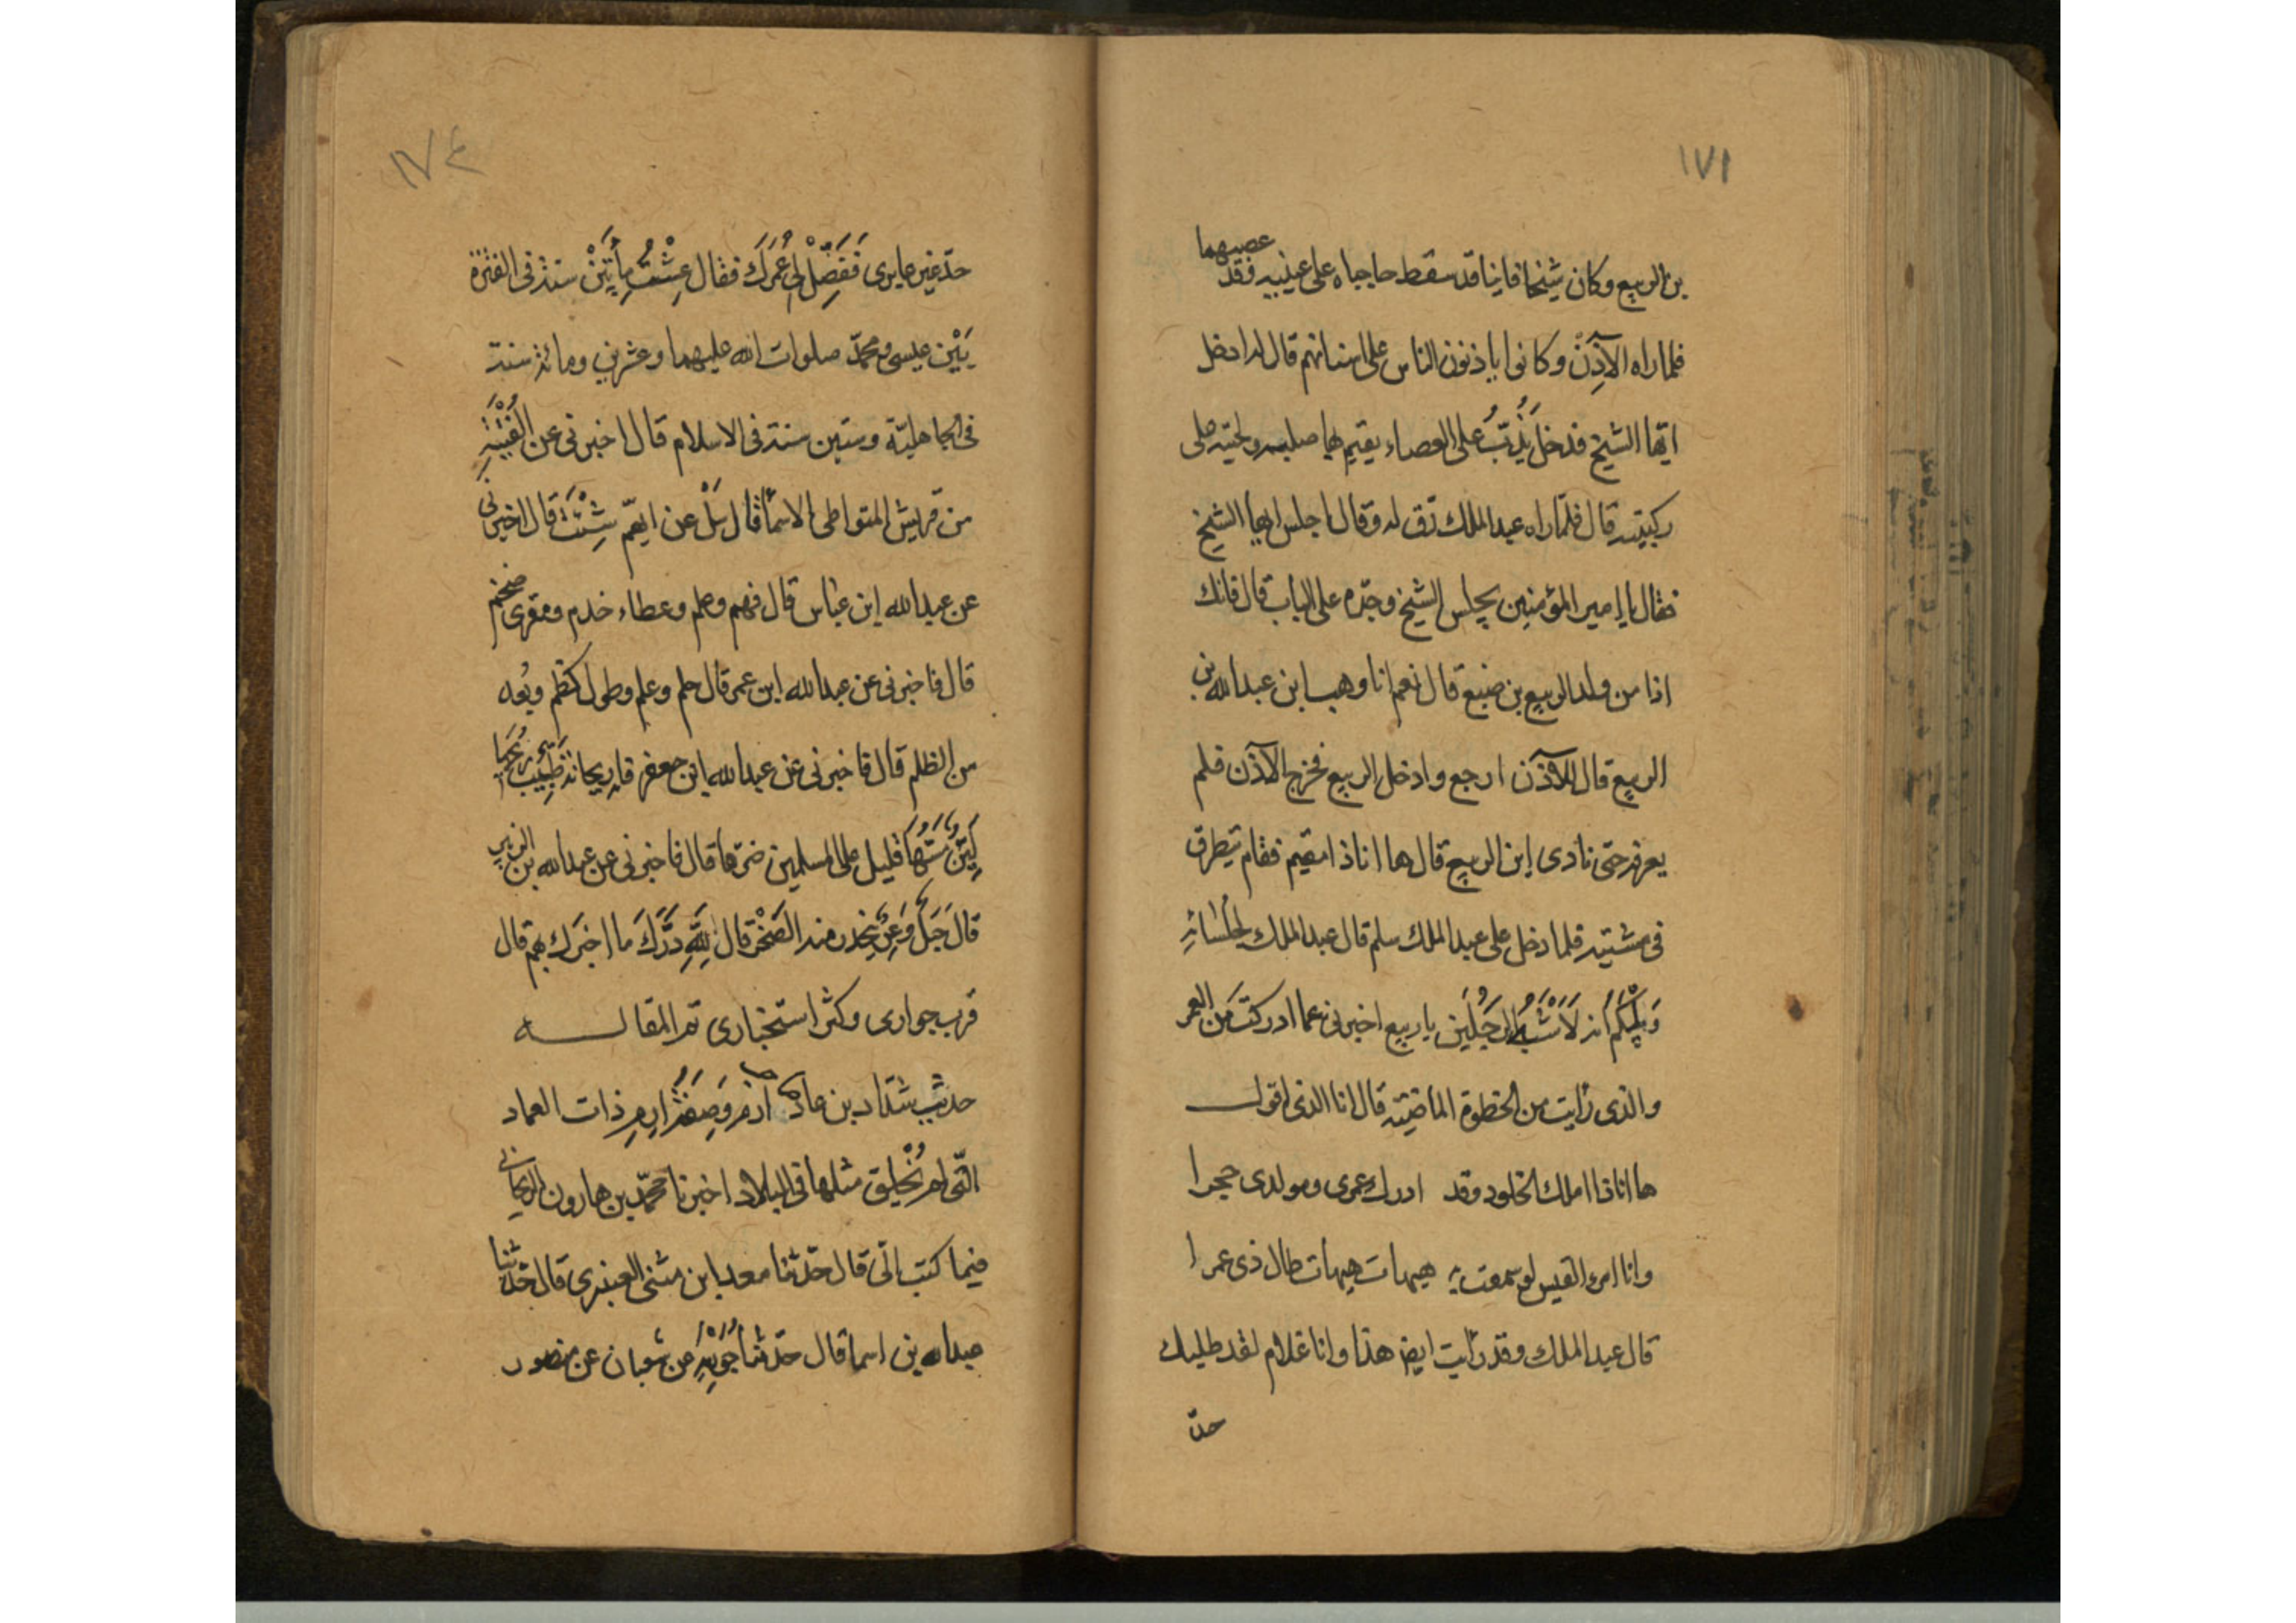 ١٧١
عصبهما
بن الربيع وكان شيخا فانيا قد سقط حاجباه على عينيه فقد
فلما راه الآذِنُ وكانوا ياذنون الناس على اسنانهم قال له ادخل
ايّها الشيخ فدخل يَدُبّ على العصاء يقيم بها صلبه ولحيته على
ركبيته قال فلمّا راه عبد الملك رَق له وقال اجلس ايها الشيخ
فقال يا امير المؤمنين يجلس الشيخ وجدّه على الباب قال فانك
اذا من ولد الربيع بن ضبع قال نعم انا وهب ابن عبد الله بن
الربيع قال للآذن ارجع وادخل الربيع فخرج الآذن فلم
يعرفه حتى نادى اين الربيع قال ها انا ذا مقيم فقام يتطرق
فى مشتيه فلما دخل على عبد الملك سلم قال عبد الملك لجلسائه
وَيْلكم أنه لَاَشْبَهُ الرجلين يا ربيع اخبرنى عما ادركت من العمر
والذى رأيت من الخطوة الماضيته قال انا الذى اقول
ها انا ذا املك الخلود وقد ادرك عمرى ومولدى حجرا
وانا امرء القيس لو سمعت به هيهات هيهات طال ذى عمرا
قال عبد الملك وقد رأيت ايضا هذا وانا غلام لقد طلبك
حدّ
١٧٤
حدّ غير ما يرى فَفَصِّلْ لى عُمرَكَ فقال عِشْتُ مِأتَيْنْ سنة فى الفترة
بَيْن عيسى ومحمدّ صلوات الله عليهما وعشرين ومائة سنة
فى الجاهليّة وستين سنة فى الاسلام قال اخبرنى عن الفِتْيَةِ
من قريش المتواطى الاسماء قال سَلْ عن ايّهم شِئْتَ قال اخبرنى
عن عبد الله ابن عباس قال فهم وعلم وعطاء خدم ومقرى ضخم
قال فاخبرنى عن عبد الله ابن عمر قال حلم وعلم وطول كظم وبُعد
من الظلم قال فاخبرنى عن عبد الله ابن جعفر قال ريحانة طَيِّب ريحها
لَيِّنٌ مَسُّهَا قليل على المسلمين ضرّها قال فاخبرنى عن عبد الله بن الزبير
قال جَبَلٌ وَعِرٌ ينحدر منه الصَخْرُ قال لِلّهِ دَرُّكَ ما اخبرَك بهم قال
قرب جوارى وكثر استخبارى تم المقاله
حديث شدّاد بن عاد ارم وَصِفَة اِرمِ ذات العماد
التّى لم يُخْلق مثلها فى البلاد اخبرنا محمّد بن هارون الزنجانى
فيما كتب الىّ قال حدّثنا معد ابن مثنى العنبرى قال حدّثنا
عبد الله بن اسما قال حدّثنا جُوَيْرِية عن سفيان عن منصور